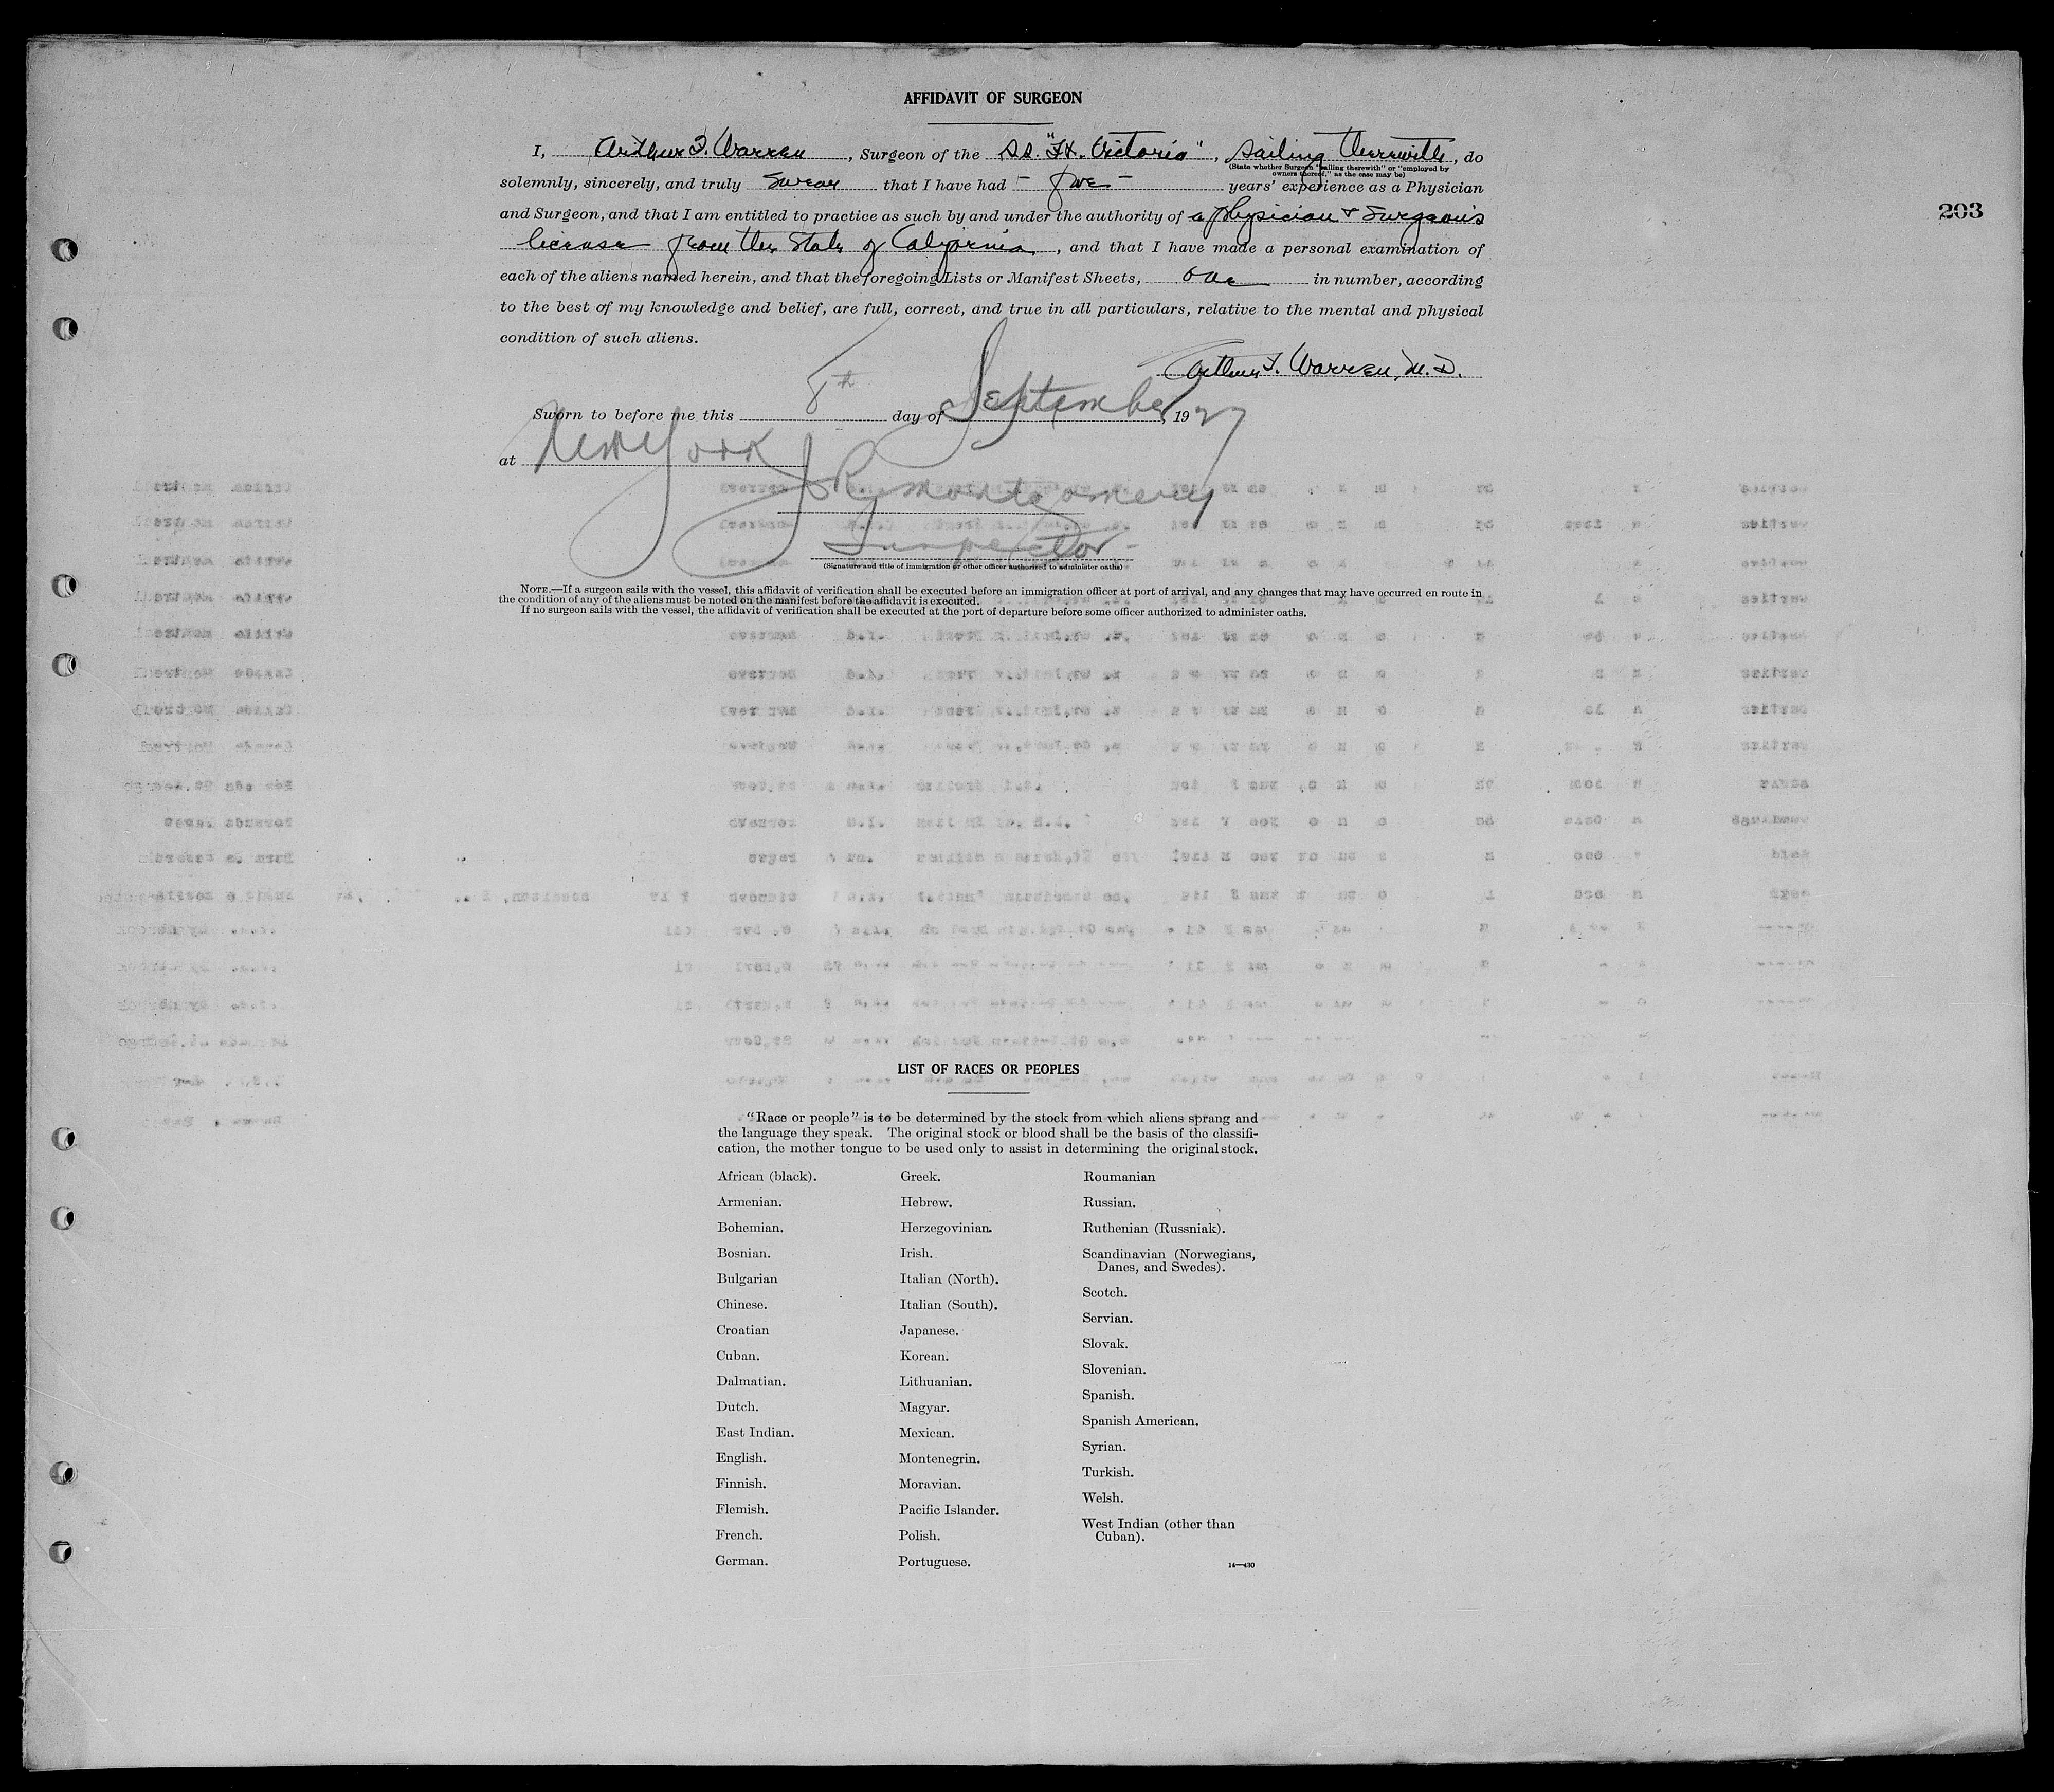 AFFIDAVIT OF SURGEON
203
I, Arthur F. Warren, Surgeon of the SS. "Ft. Victoria", sailing therewith, do
(State whether Surgeon "sailing therewith" or "employed by
owners thereof," as the case may be)
solemnly, sincerely, and truly swear that I have had - five - years' experience as a Physician
and Surgeon, and that I am entitled to practice as such by and under the authority of a physician & surgeon's
license from the State of California, and that I have made a personal examination of
each of the aliens named herein, and that the foregoing Lists or Manifest Sheets, one in number, according
to the best of my knowledge and belief, are full, correct, and true in all particulars, relative to the mental and physical
condition of such aliens.
Arthur F. Warren, M.D.
Sworn to before me this 8th day of September, 1927
at New York
J R Montgomery
Inspector
(Signature and title of immigration or other officer authorized to administer oaths)
NOTE.—If a surgeon sails with the vessel, this affidavit of verification shall be executed before an immigration officer at port of arrival, and any changes that may have occurred en route in
the condition of any of the aliens must be noted on the manifest before the affidavit is executed.
If no surgeon sails with the vessel, the affidavit of verification shall be executed at the port of departure before some officer authorized to administer oaths.
LIST OF RACES OR PEOPLES
"Race or people" is to be determined by the stock from which aliens sprang and
the language they speak. The original stock or blood shall be the basis of the classifi-
cation, the mother tongue to be used only to assist in determining the original stock.
African (black).
Armenian.
Bohemian.
Bosnian.
Bulgarian
Chinese.
Croatian
Cuban.
Dalmatian.
Dutch.
East Indian.
English.
Finnish.
Flemish.
French.
German.
Greek.
Hebrew.
Herzegovinian.
Irish.
Italian (North).
Italian (South).
Japanese.
Korean.
Lithuanian.
Magyar.
Mexican.
Montenegrin.
Moravian.
Pacific Islander.
Polish.
Portuguese.
Roumanian
Russian.
Ruthenian (Russniak).
Scandinavian (Norwegians,
Danes, and Swedes).
Scotch.
Servian.
Slovak.
Slovenian.
Spanish.
Spanish American.
Syrian.
Turkish.
Welsh.
West Indian (other than
Cuban).
14—430